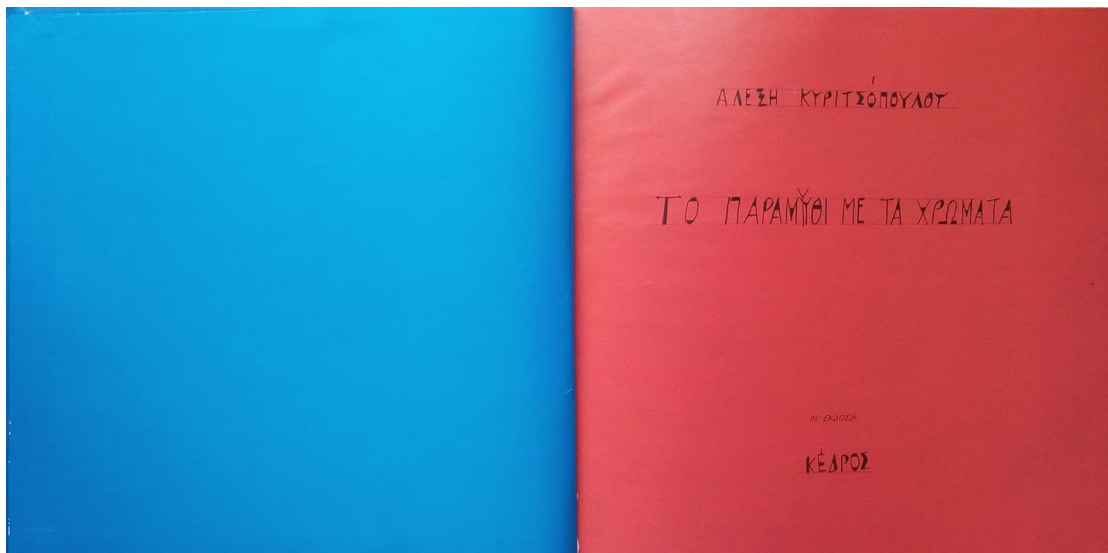 ΑΛΕΞΗ ΚΥΡΙΤΣΌΠΟΥΛΟΥ
ΤΟ ΠΑΡΑΜΎΘΙ ΜΕ ΤΑ ΧΡΩΜΑΤΑ
ΙΗ' ΕΚΔΟΣΗ
ΚΈΔΡΟΣ